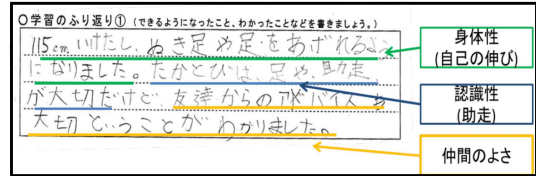 ○学習のふり返り① (できるようになったこと、わかったことなどを書きましょう。)
115cm いけたし、ぬき足や足をあげれるよう
になりました。たかとびは、足や、助走
が大切だけど、友達からのアドバイスも
大切ということがわかりました。
身体性
(自己の伸び)
認識性
(助走)
仲間のよさ